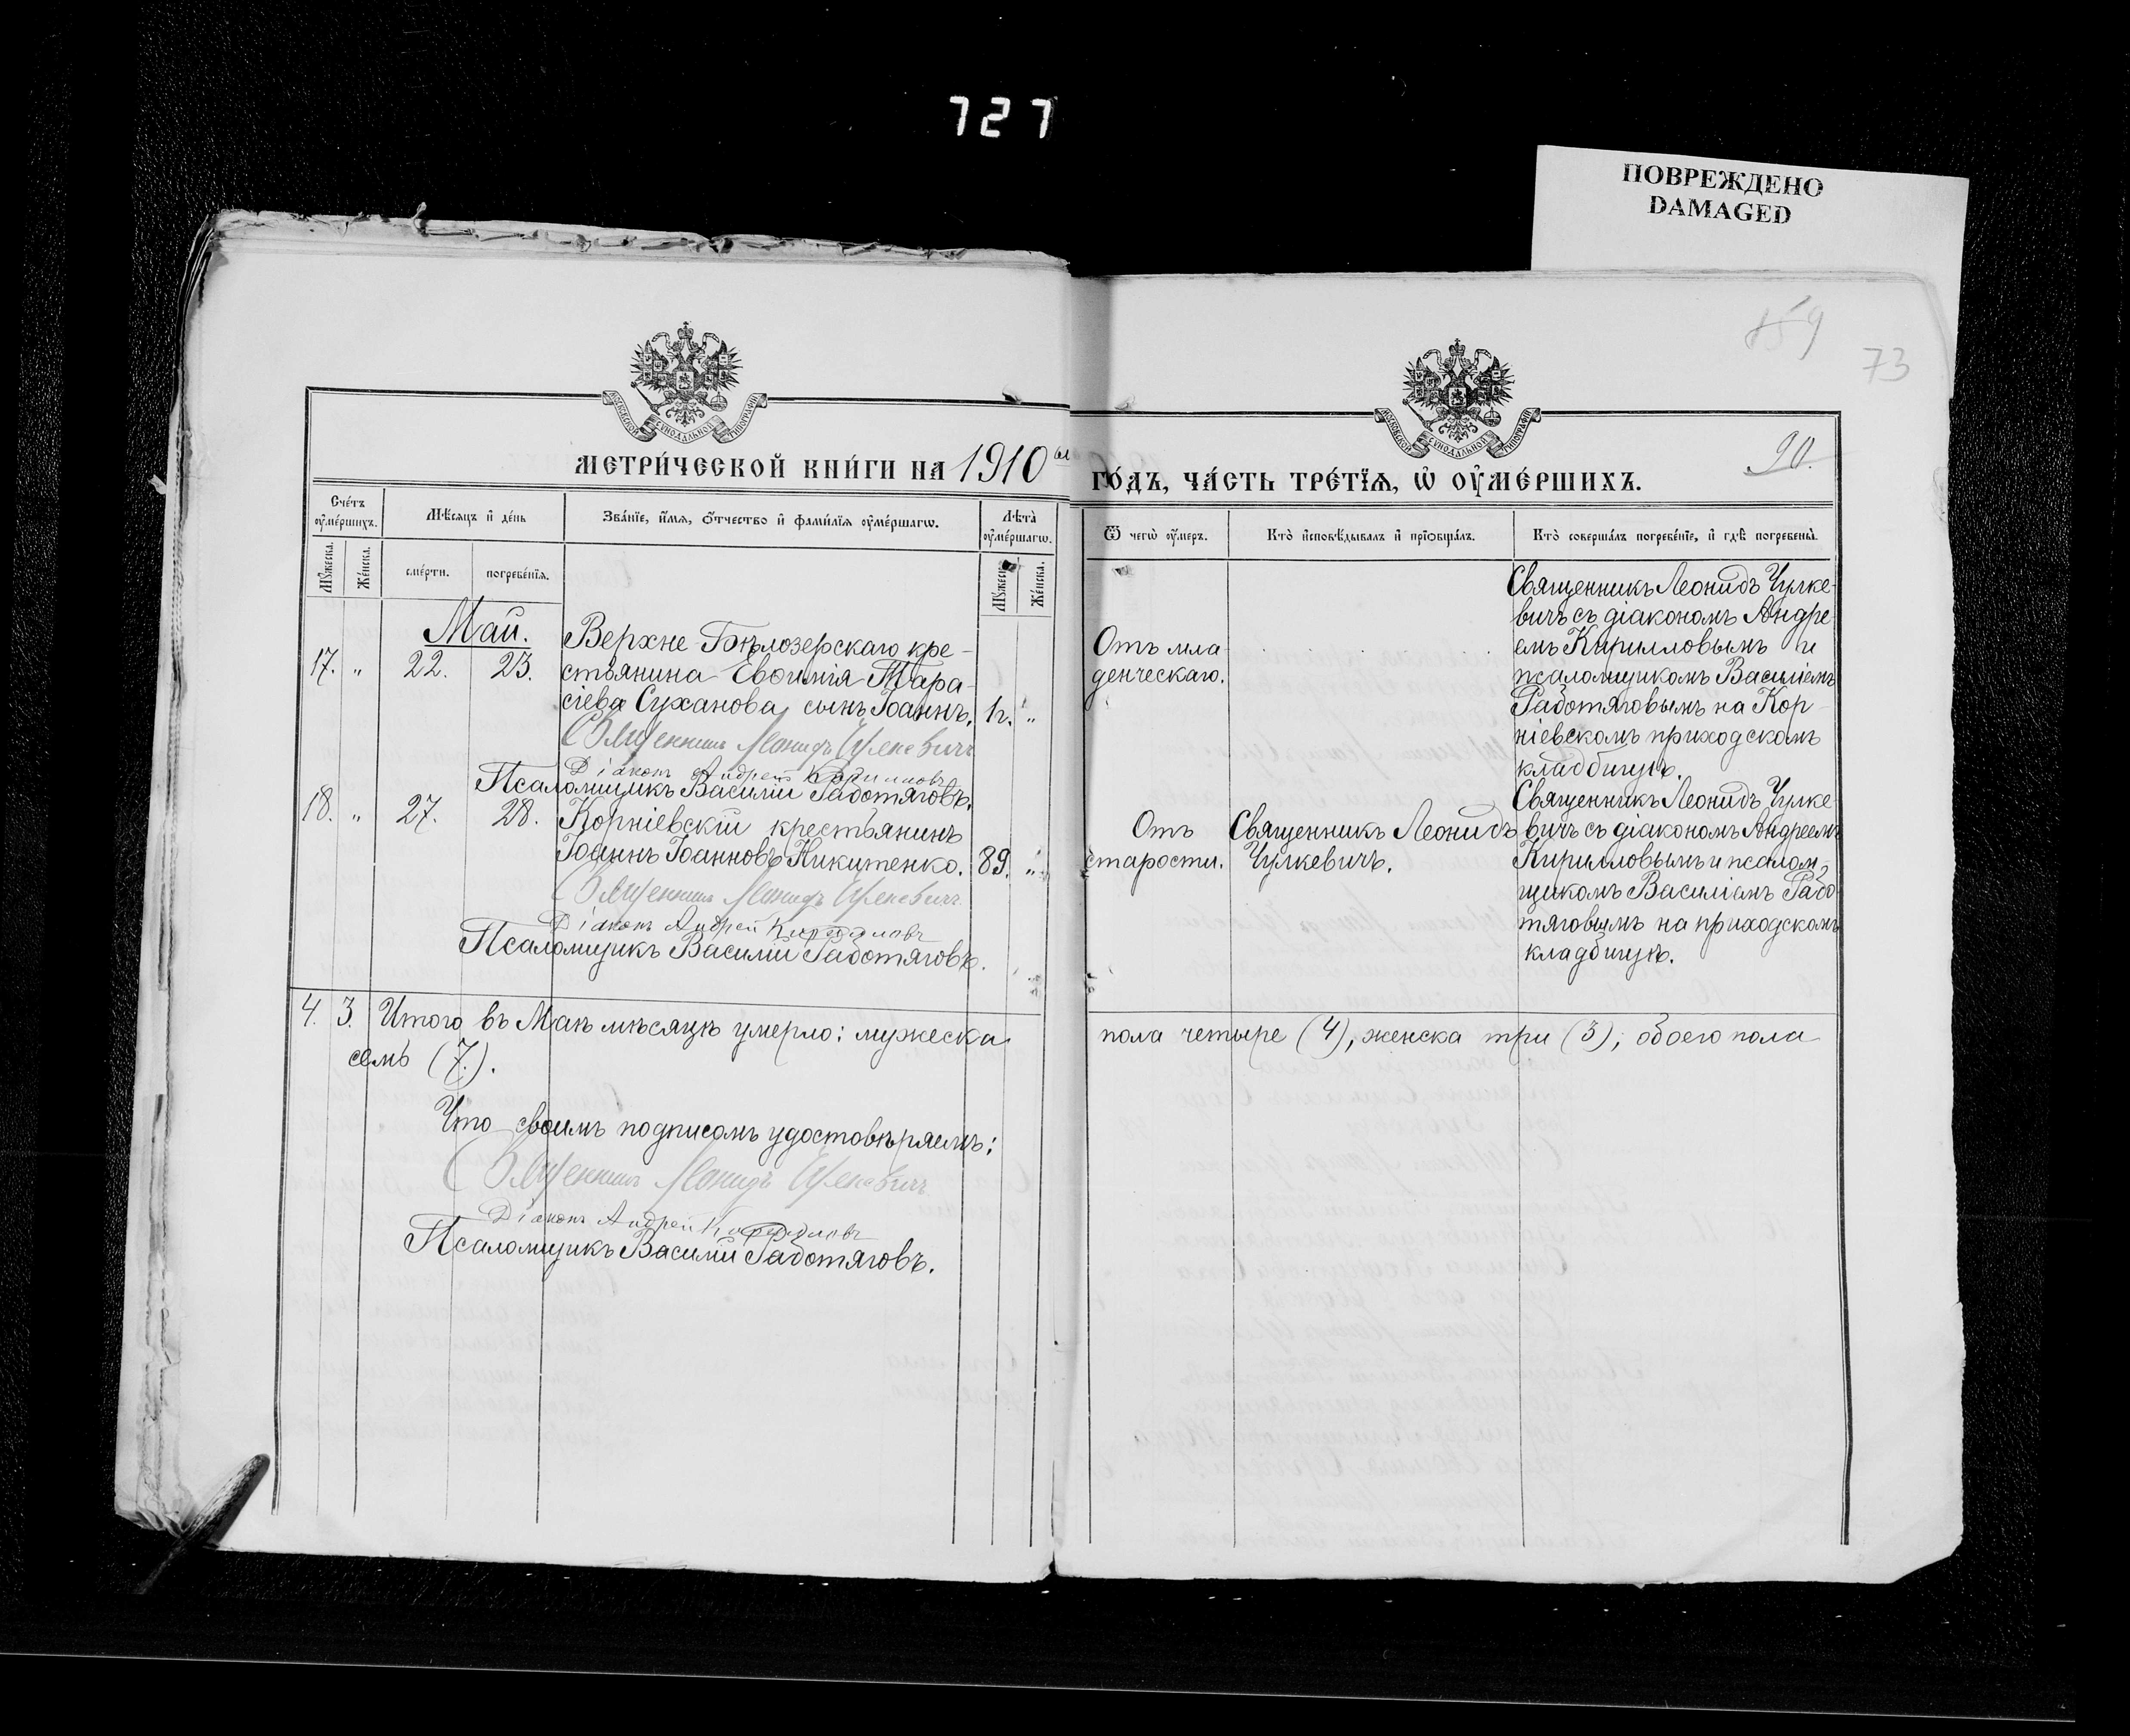 727
ПОВРЕЖДЕНО
DAMAGED
159
73
90.
МОСКОВСКОЙ СѴНОДАЛЬНОЙ ТИПОГРАФІИ
МОСКОВСКОЙ СѴНОДАЛЬНОЙ ТИПОГРАФІИ
МЕТРИ́ЧЕСКОЙ КНИ́ГИ НА 1910ый
ГО́ДЪ, ЧА́СТЬ ТРЕ́ТЇѦ, Ѡ҆ ОУ҆МЕ́РШИХЪ.
Сче́тъ оу҆ме́ршихъ.
Мѣ́сяцъ и҆ де́нь
Зва́нїе, и҆́мѧ, ѻ҆́тчество и҆ фами́лїѧ оу҆ме́ршагѡ.
Лѣ́та оу҆ме́ршагѡ.
Мꙋ́жеска.
Же́нска.
сме́рти.
погребе́нїѧ.
Мꙋ́жеска.
Же́нска.
Ѿ чегѡ̀ оу҆́меръ.
Кто̀ и҆сповѣ́дывалъ и҆ прїѡбща́лъ.
Кто̀ соверша́лъ погребе́нїе, и҆ гдѣ̀ погребены̀.
Май.
17. " 22. 23.
Верхне-Бѣлозерскаго кре-
стьянина Евѳимія Тара-
сіева Суханова, сынъ Іоаннъ.
1г. "
Священникъ Леонидъ Чулкевичъ
Діаконъ Андрей Кирилловъ
Псаломщикъ Василій Работяговъ.
Отъ мла-
денческаго.
Священникъ Леонидъ Чулке-
вичъ съ діакономъ Андре-
емъ Кирилловымъ и
псаломщикомъ Василіемъ
Работяговымъ на Кор-
ніевскомъ приходскомъ
кладбищѣ.
18. " 27. 28.
Корніевскій крестьянинъ
Іоаннъ Іоанновъ Никитенко.
89. "
Священникъ Леонидъ Чулкевичъ
Діаконъ Андрей Кирилловъ
Псаломщикъ Василій Работяговъ.
Отъ
старости.
Священникъ Леонидъ
Чулкевичъ.
Священникъ Леонидъ Чулке-
вичъ съ діакономъ Андреемъ
Кирилловымъ и псалом-
щикомъ Василіемъ Рабо-
тяговымъ на приходскомъ
кладбищѣ.
4. 3. Итого въ Маѣ мѣсяцѣ умерло: мужеска пола четыре (4), женска три (3); обоего пола
семь (7.).
Что своимъ подписомъ удостовѣряемъ:
Священникъ Леонидъ Чулкевичъ
Діаконъ Андрей Кирилловъ
Псаломщикъ Василій Работяговъ.